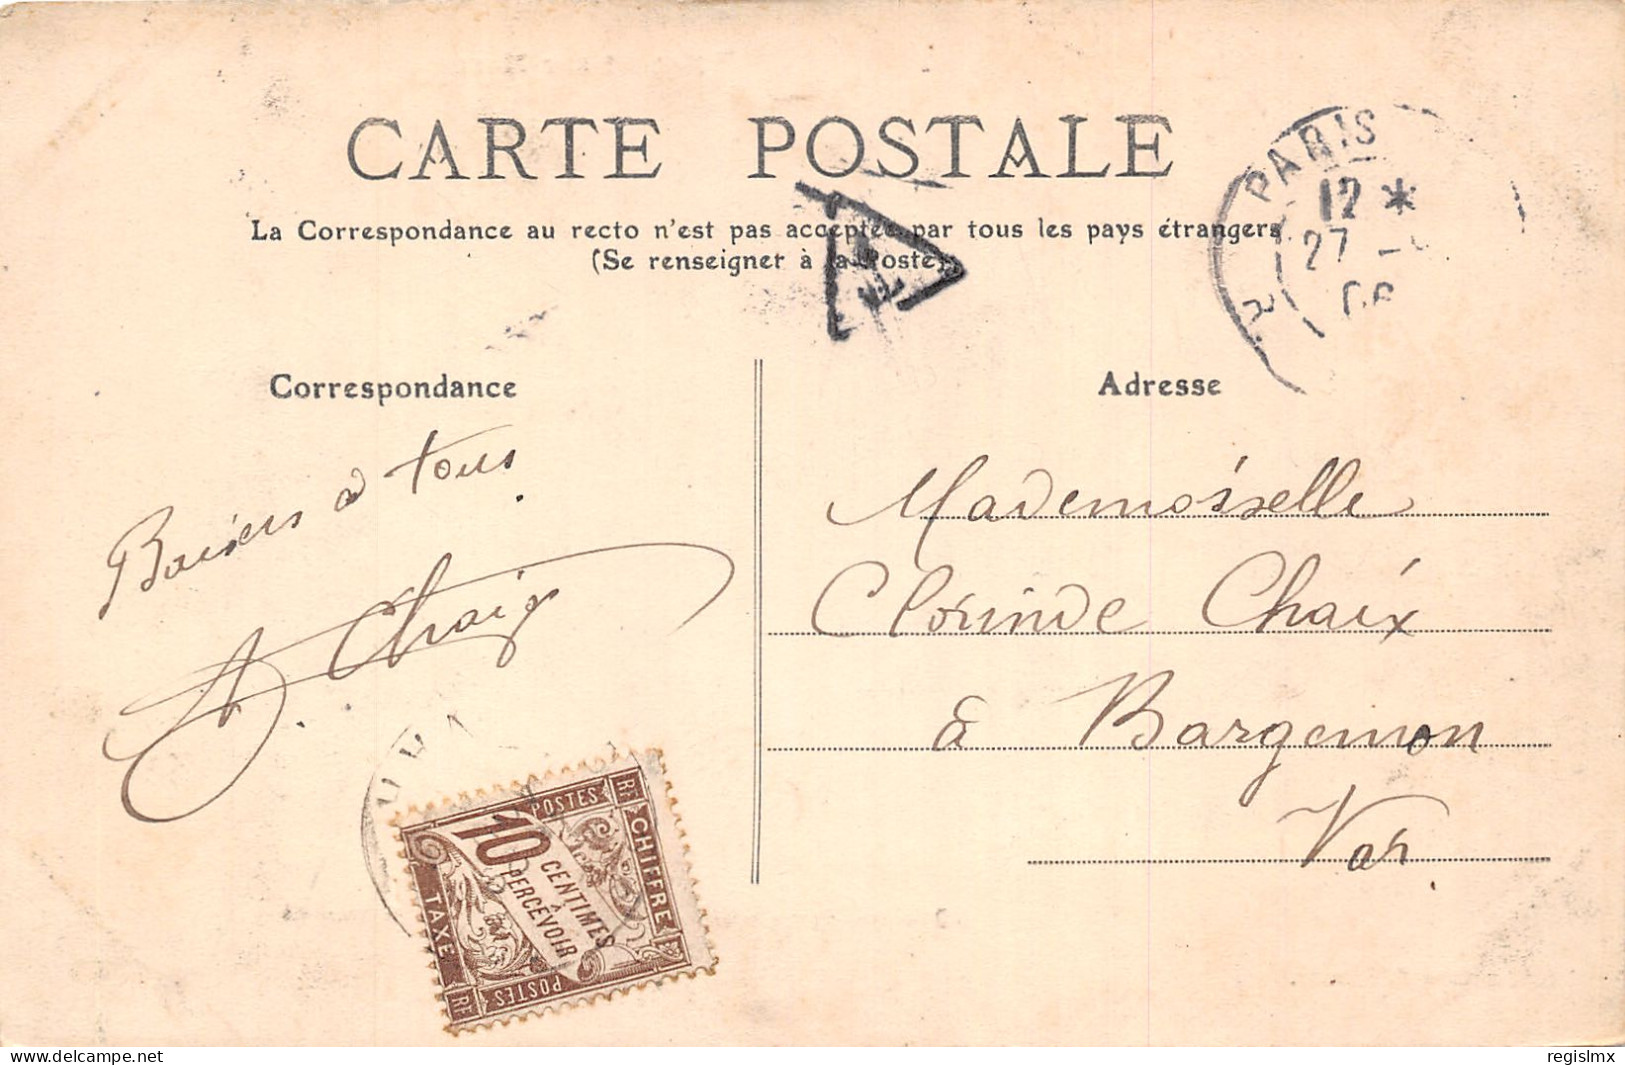 CARTE POSTALE
La Correspondance au recto n'est pas acceptée par tous les pays étrangers
(Se renseigner à la Poste)
PARIS
12 *
27
T
Correspondance
Adresse
Baisers à tous.
A. Chaix
Mademoiselle
Clorinde Chaix
à Bargemon
Var.
POSTES
RF
CHIFFRE
10
CENTIMES
À
PERCEVOIR
TAXE
RF
POSTES
RF
www.delcampe.net
regislmx